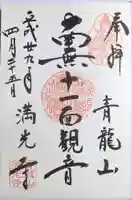 奉拝
青龍山
十一面観音
満光寺
平成廿九年
四月二十五日